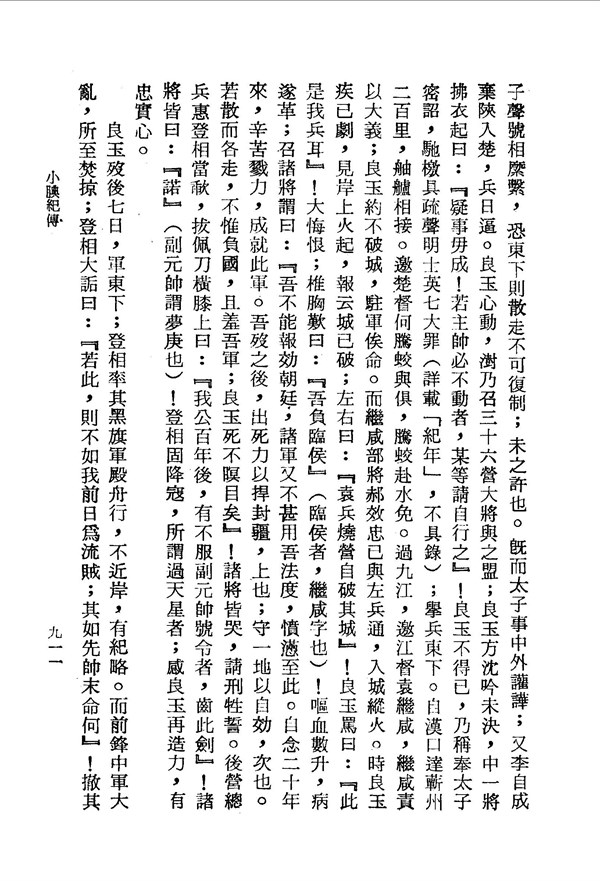 子聲號相縻繫，恐東下則散走不可復制；未之許也。旣而太子事中外讙譁；又李自成
棄陝入楚，兵日逼。良玉心動，澍乃召三十六營大將與之盟；良玉方沈吟未決，中一將
拂衣起曰：『疑事毋成！若主帥必不動者，某等請自行之』！良玉不得已，乃稱奉太子
密詔，馳檄具疏聲明士英七大罪（詳載「紀年」，不具錄）；擧兵東下。自漢口達蘄州
二百里，舳艫相接。邀楚督何騰蛟與俱，騰蛟赴水免。過九江，邀江督袁繼咸，繼咸責
以大義；良玉約不破城，駐軍俟命。而繼咸部將郝效忠已與左兵通，入城縱火。時良玉
疾已劇，見岸上火起，報云城已破；左右曰：『袁兵燒營自破其城』！良玉罵曰：『此
是我兵耳』！大悔恨；椎胸歎曰：『吾負臨侯』（臨侯者，繼咸字也）！嘔血數升，病
遂革；召諸將謂曰：『吾不能報効朝廷，諸軍又不甚用吾法度，憤懣至此。自念二十年
來，辛苦戮力，成就此軍。吾歿之後，出死力以捍封疆，上也；守一地以自効，次也。
若散而各走，不惟負國，且羞吾軍；良玉死不瞑目矣』！諸將皆哭，請刑牲誓。後營總
兵惠登相當歃，拔佩刀橫膝上曰：『我公百年後，有不服副元帥號令者，齒此劍』！諸
將皆曰：『諾』（副元帥謂夢庚也）！登相固降寇，所謂過天星者；感良玉再造力，有
忠實心。
良玉歿後七日，軍東下；登相率其黑旗軍殿舟行，不近岸，有紀略。而前鋒中軍大
亂，所至焚掠；登相大詬曰：『若此，則不如我前日爲流賊；其如先帥末命何』！撤其
小腆紀傳
九一一